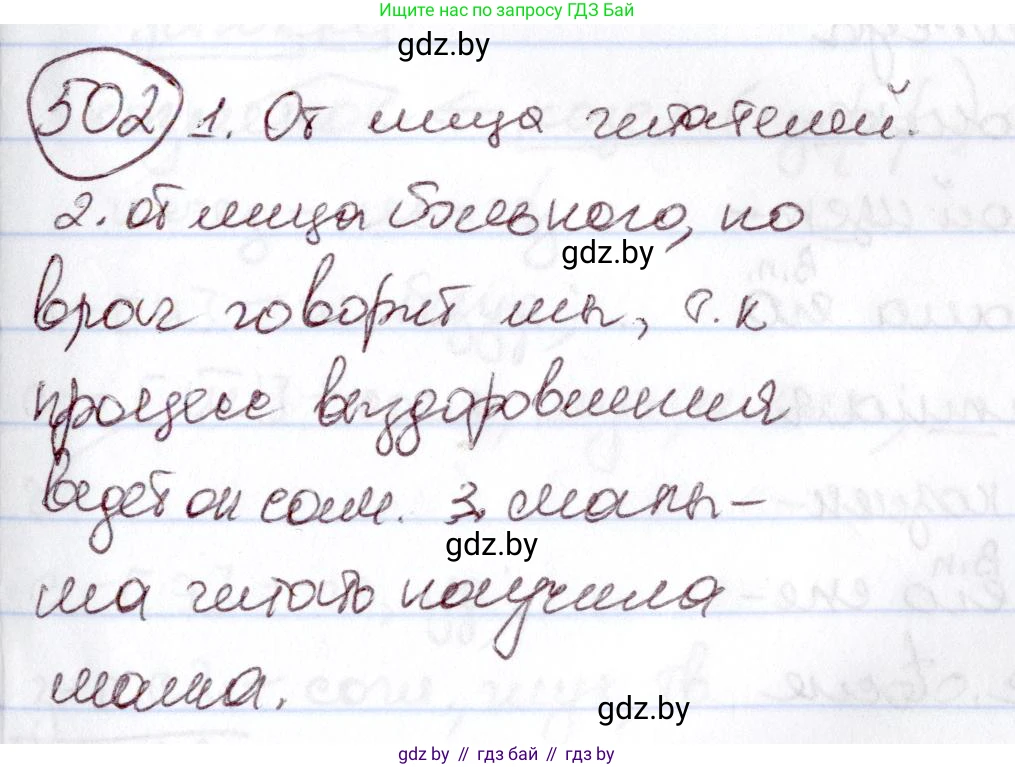 Ищите нас по запросу ГДЗ Бай
gdz.by
502 1. От лица читателей.
2. от лица больного, но
gdz.by
врач говорит мы, т.к
процесс выздоровления
ведет он сам. 3. малы-
gdz.by
ша читать научила
мама.
gdz.by
gdz by // гдз бай // гдз by